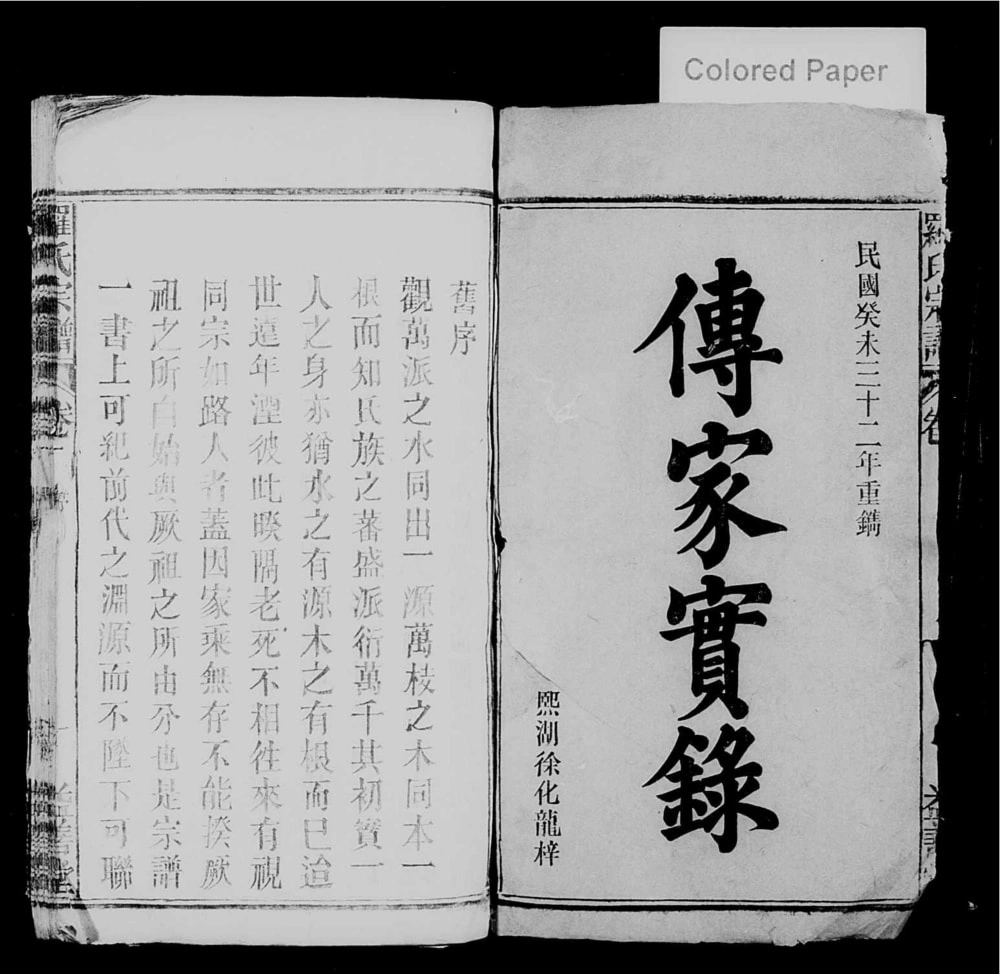 Colored Paper
民國癸未三十二年重鐫
傳家實錄
熙湖徐化龍梓
舊序
觀萬派之水同出一源萬枝之木同本一
根而知氏族之蕃盛派衍萬千其初實一
人之身亦猶水之有源木之有根而已迨
世遠年湮彼此暌隔老死不相徃來有視
同宗如路人者蓋因家乘無存不能揆厥
祖之所自始與厥祖之所由分也是宗譜
一書上可紀前代之淵源而不墜下可聯
羅氏宗譜
卷
羅氏宗譜
卷一
序
一
益善堂